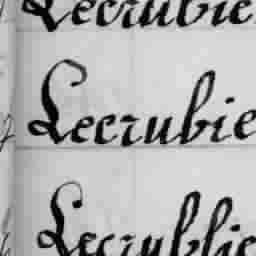 Lecrubie
Lecrubie
Lecrublie